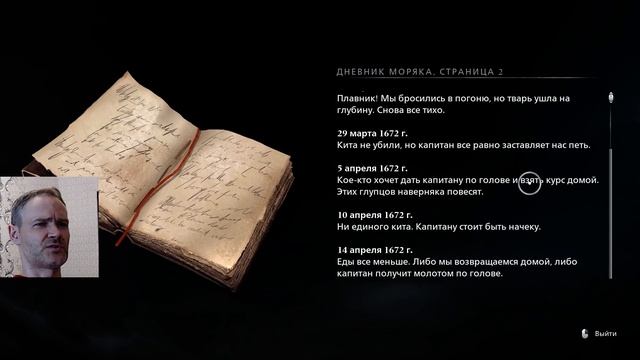 ДНЕВНИК МОРЯКА, СТРАНИЦА 2
Плавник! Мы бросились в погоню, но тварь ушла на
глубину. Снова все тихо.
29 марта 1672 г.
Кита не убили, но капитан все равно заставляет нас петь.
5 апреля 1672 г.
Кое-кто хочет дать капитану по голове и взять курс домой.
Этих глупцов наверняка повесят.
10 апреля 1672 г.
Ни единого кита. Капитану стоит быть начеку.
14 апреля 1672 г.
Еды все меньше. Либо мы возвращаемся домой, либо
капитан получит молотом по голове.
Выйти